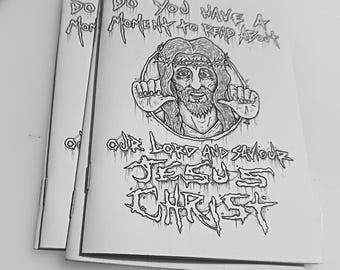 DO YOU HAVE A
MOMENT TO READ ABOUT
OUR LORD AND SAVIOUR
JESUS
CHRIST